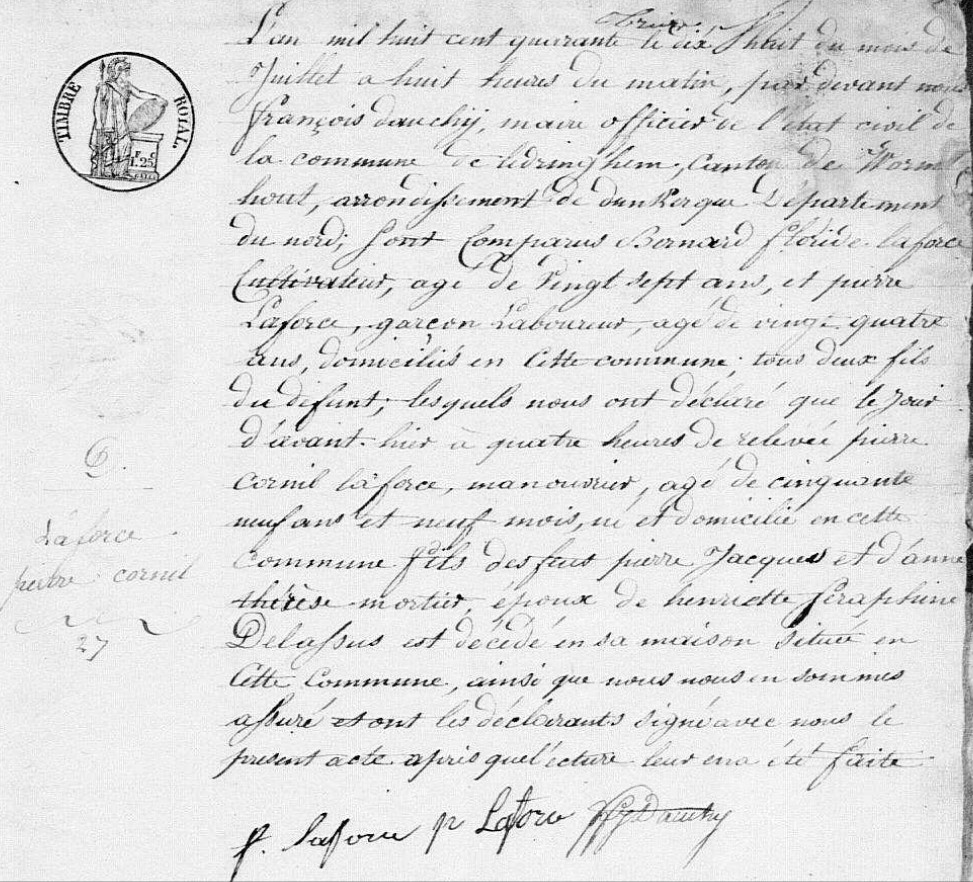 L'an mil huit cent quarante trois le dix huit du mois de
Juillet a huit heures du matin, par devant nous
françois dauchij, maire officier de l'état civil de
la commune de Ledringhem, Canton de Worm
hout, arrondissement de dunkerque Département
du nord; sont Comparus Bernard floride laforce
Cultivateur, agé de vingt sept ans, et pierre
Laforce, garçon Laboureur, agé de vingt quatre
ans, domiciliés en Cette commune; tous deux fils
du défunt; lesquels nous ont déclaré que le jour
d'avant-hier à quatre heures de relevée pierre
cornil laforce, manouvrier, agé de cinquante
neuf ans et neuf mois, né et domicilié en cette
commune fils des feus pierre Jacques et d'anne
thérèse mortier, époux de henriette Séraphine
Delassus est décédé en sa maison située en
Cette Commune, ainsi que nous nous en sommes
assuré et ont les déclarants signé avec nous le
présent acte après que lécture leur en a été faite
f. laforce p Laforce Dauchy
TIMBRE ROYAL.
F. C
1. 25
6.
Laforce
pierre cornil
27